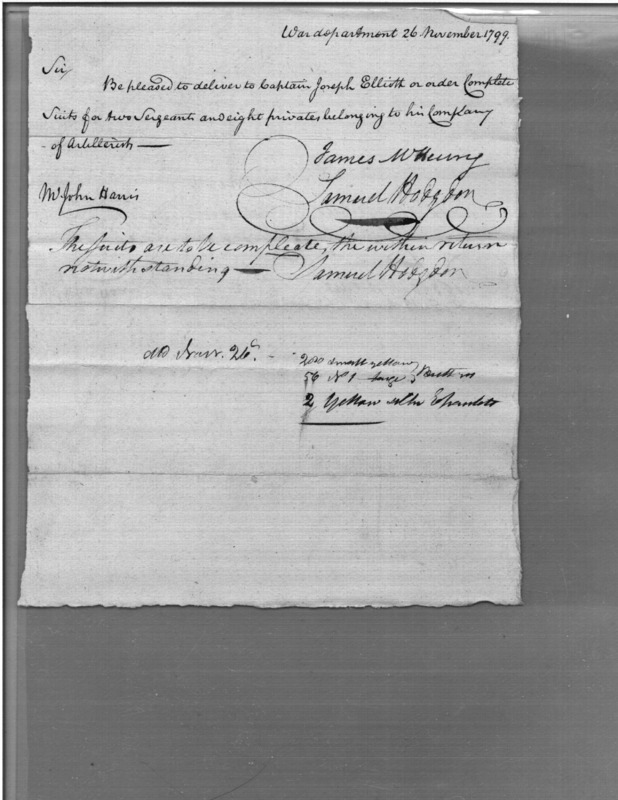 War department 26 November 1799.
Sir,
Be pleased to deliver to Captain Joseph Elliott or order Complete
Suits for two Sergeants and eight privates belonging to his Company
of Artillerists
James McHenry
Mr John Harris
Samuel Hodgdon
The Suits are to be compleate, the within return
notwithstanding — Samuel Hodgdon
26
200 small yellow
56 No 1 large } Buttons
2 Yellow Epaulets